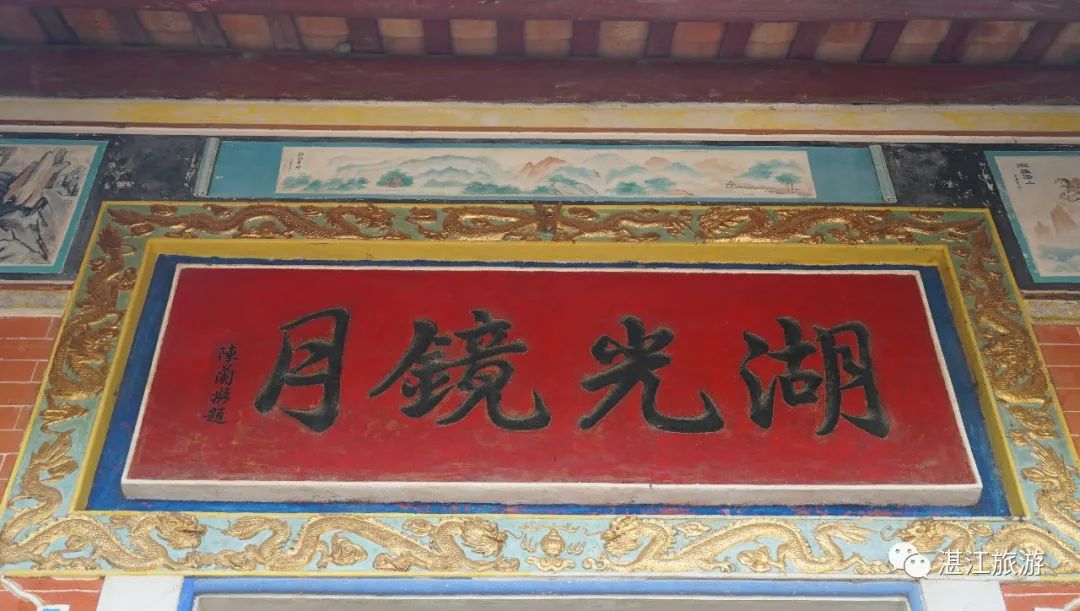 湖光鏡月
陳蘭彬題
湛江旅游